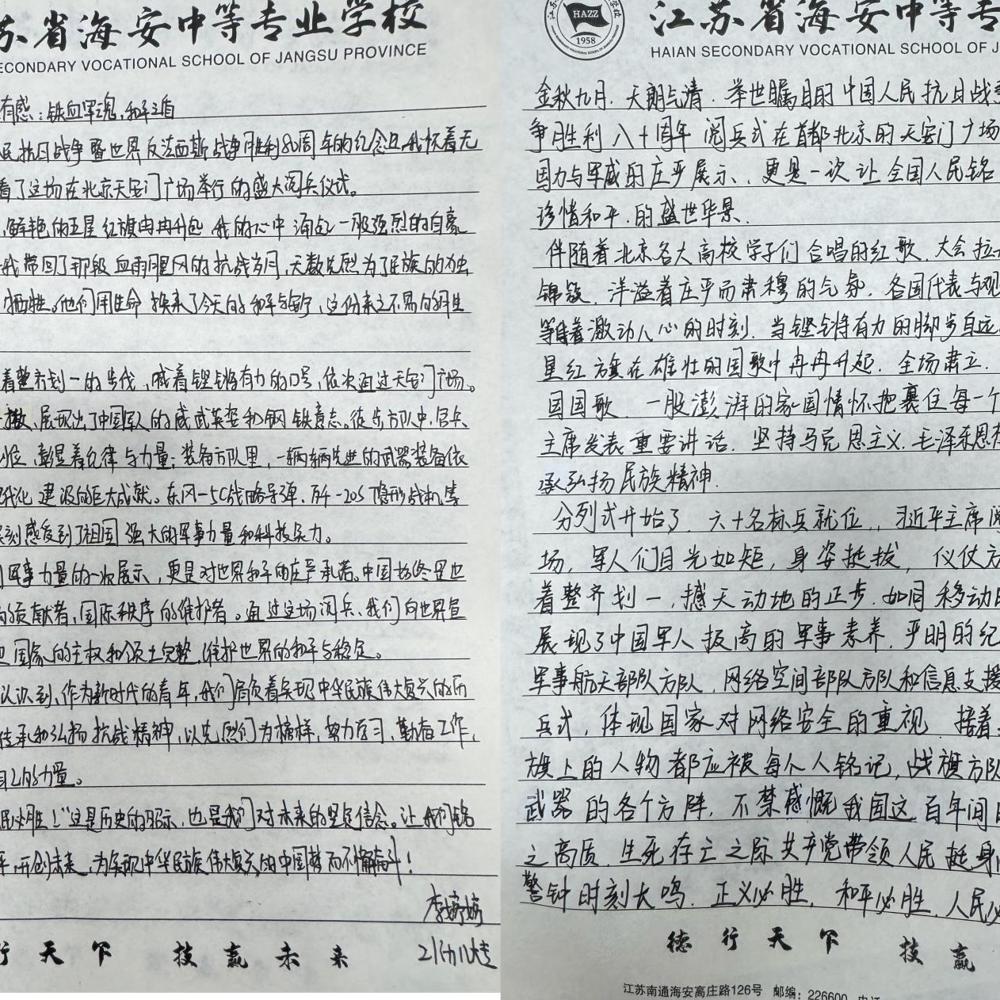 苏省海安中等专业学校
ECONDARY VOCATIONAL SCHOOL OF JANGSU PROVINCE
有感：铁血军魂，和平之盾
民抗日战争暨世界反法西斯战争胜利80周年的纪念日，我怀着无
看了这场在北京天安门广场举行的盛大阅兵仪式。
鲜艳的五星红旗冉冉升起 我的心中涌起一股强烈的自豪
我带回了那段血雨腥风的抗战岁月，无数先烈为了民族的独
牺牲。他们用生命换来了今天的和平与安宁，这份来之不易的
着整齐划一的步伐，喊着铿锵有力的口号，依次通过天安门广场。
展现出了中国军人的威武英姿和钢铁意志。徒步方队中，官兵
到位，彰显着纪律与力量；装备方队里，一辆辆先进的武器装备依
现代化建设的巨大成就。东风-5C战略导弹，歼-20S隐形战机等
深刻感受到了祖国强大的军事力量和科技实力。
军事力量的一次展示，更是对世界和平的庄严承诺。中国始终是世
的贡献者，国际秩序的维护者。通过这场阅兵，我们向世界宣
卫国家的主权和领土完整，维护世界的和平与稳定。
认识到，作为新时代的青年，我们肩负着实现中华民族伟大复兴的历
传承和弘扬抗战精神，以先烈们为榜样，努力学习，勤奋工作，
自己的力量。
民必胜！"这是历史的昭示，也是我们对未来的坚定信念。让我们铭
平而创未来，为实现中华民族伟大复兴的中国梦而不懈奋斗！
李婷婷
行天下 技赢未来
HAZZ
1958
江苏省海安中等专
HAIAN SECONDARY VOCATIONAL SCHOOL OF J
金秋九月，天朗气清，举世瞩目的中国人民抗日战争
争胜利八十周年阅兵式在首都北京的天安门广场
国力与军威的庄严展示，更是一次让全国人民铭
珍惜和平的盛世华景．
伴随着北京各大高校学子们合唱的红歌，大会拉
锦簇，洋溢着庄严而肃穆的气氛，各国代表与观
等待着激动人心的时刻，当铿锵有力的脚步自远
星红旗在雄壮的国歌中冉冉升起，全场肃立，
国国歌，一股澎湃的家国情怀把裹住每一个
主席发表重要讲话，坚持马克思主义，毛泽东思想
承弘扬民族精神．
分列式开始了，六十名标兵就位，习近平主席阅
场，军人们目光如炬，身姿挺拔，仪仗方
着整齐划一，撼天动地的正步，如同移动的
展现了中国军人拔高的军事素养，严明的纪
军事航天部队方队，网络空间部队方队和信息支援
兵式，体现国家对网络安全的重视．接着
旗上的人物都应被每个人铭记，战旗方队
武器的各个方阵，不禁感慨我国这百年间
之高质，生死存亡之际共产党带领人民挺身
警钟时刻长鸣，正义必胜，和平必胜，人民必
德行天下 技赢
江苏南通海安高庄路126号 邮编：226600